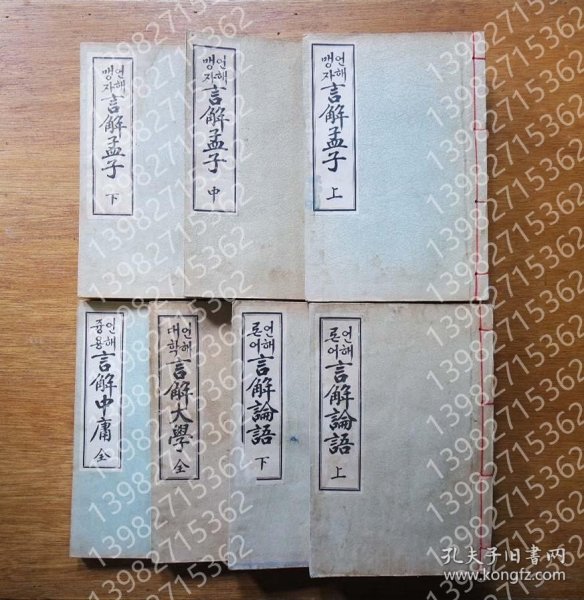 언해
맹자
言解孟子
下
언해
맹자
言解孟子
中
언해
맹자
言解孟子
上
언해
중용
言解中庸
全
언해
대학
言解大學
全
언해
론어
言解論語
下
언해
론어
言解論語
上
13982715362
孔夫子旧书网
www.kongfz.com